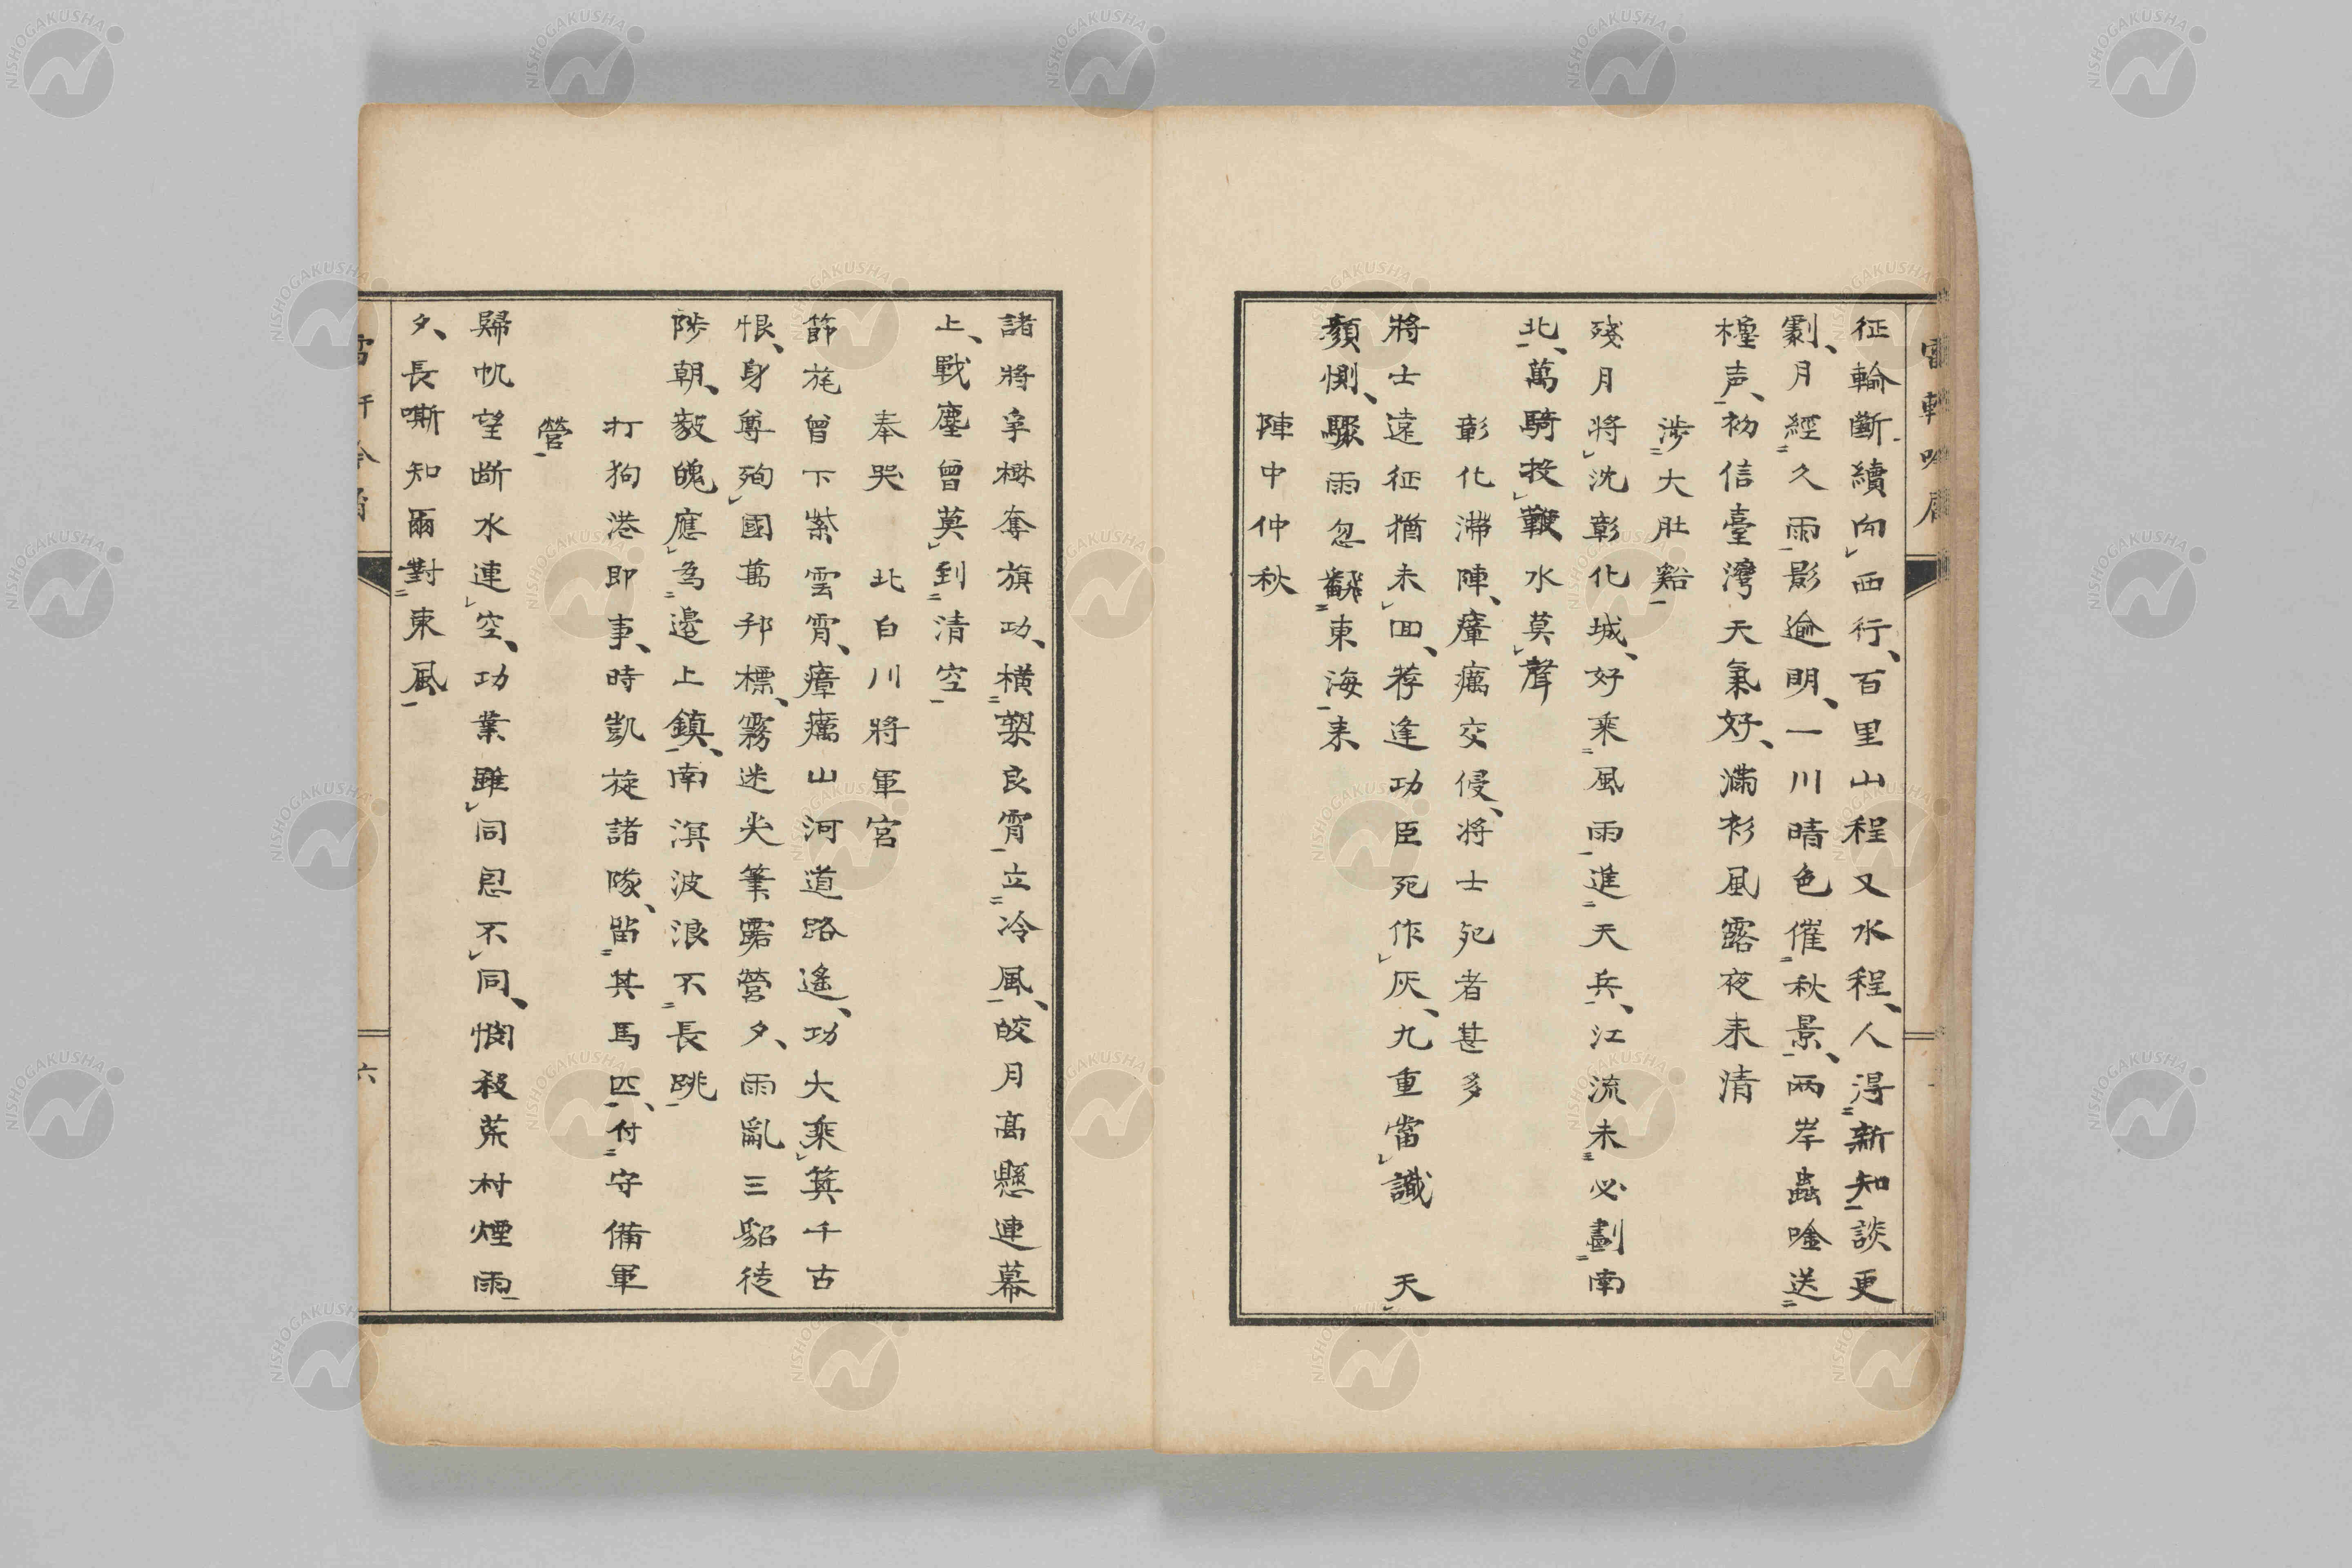 征輪斷續向西行、百里山程又水程、人得新知談更
劇、月經久雨影逾明、一川晴色催秋景、两岸蟲唫送
檯声、初信臺灣天氣好、滿衫風露夜来清
涉大肚谿
殘月將沈彰化城、好乘風雨進天兵、江流未必劃南
北、萬騎投鞭水莫聲
彰化滯陣、瘴癘交侵、将士死者甚多
將士遠征猶未回、荐逢功臣死作灰、九重當識 天
顏惻、驟雨忽飜東海来
陣中仲秋
諸將争楙奪旗功、横槊良宵立冷風、皎月高懸連幕
上、戰塵曾莫到清空
奉哭 北白川將軍宮
節旄曾下紫雲霄、瘴癘山河道路遙、功大乘箕千古
恨、身尊殉國萬邦標、霧迷尖筆露營夕、雨亂三貂徒
陟朝、毅魄應為邊上鎮、南溟波浪不長跳
打狗港即事、時凱旋諸隊、留其馬匹、付守備軍
營
歸帆望断水連空、功業雖同恩不同、惆殺荒村煙雨
夕、長嘶知爾對東風
六
NISHOGAKUSHA